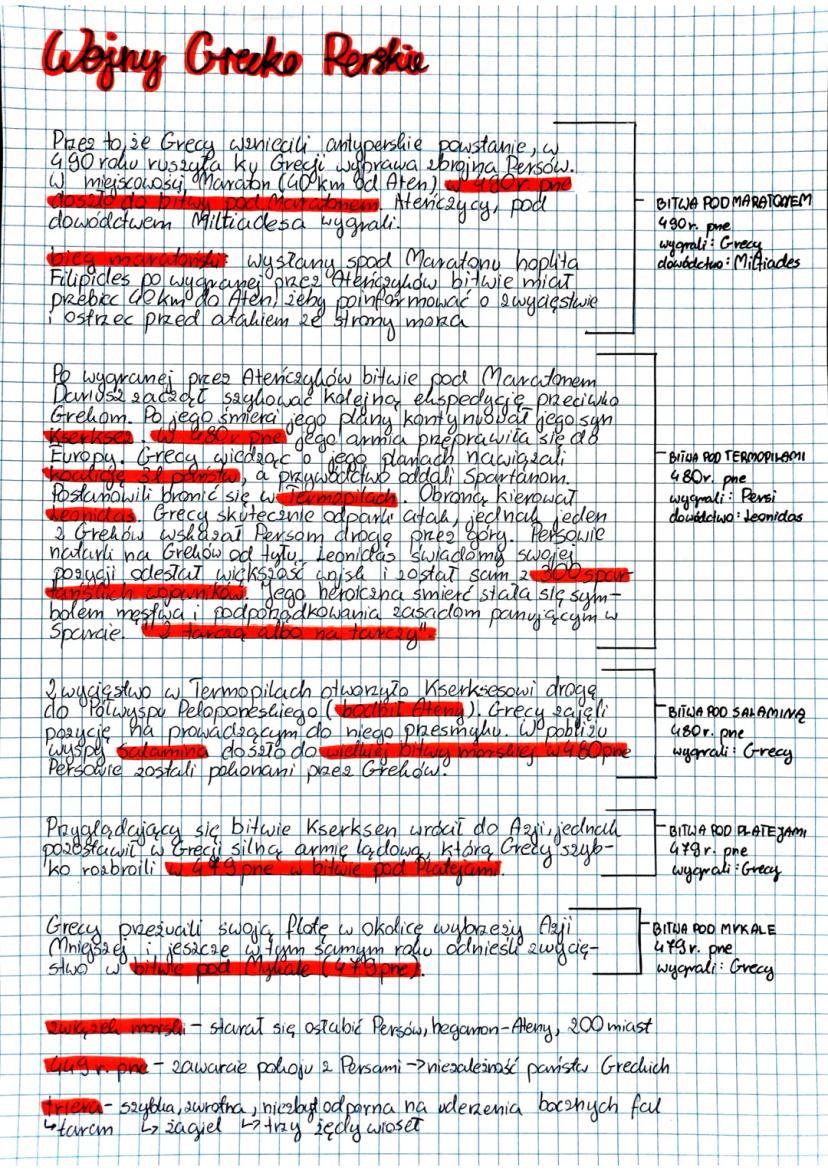 Wojny Grecko Perskie
Przez to, że Grecy wzniecili antyperskie powstanie, w
490 roku ruszyła ku Grecji wyprawa zbrojna Persów.
W miejscowości Maraton (40 km od Aten) w 490r. pne
doszło do bitwy pod Maratonem. Ateńczycy, pod
dowództwem Miltiadesa wygrali.
BITWA POD MARATONEM
490 r. pne
wygrali: Grecy
dowództwo: Miltiades
bieg maratoński: wysłany spod Maratonu hoplita
Filipides po wygranej przez Ateńczyków bitwie miał
przebiec 40 km do Aten, żeby poinformować o zwycięstwie
i ostrzec przed atakiem ze strony morza
Po wygranej przez Ateńczyków bitwie pod Maratonem
Dariusz zaczął szykować kolejną ekspedycję przeciwko
Grekom. Po jego śmierci jego plany kontynuował jego syn
Kserkses. W 480r. pne jego armia przeprawiła się do
Europy. Grecy wiedząc o jego planach nawiązali
koalicję 31 państw, a przywództwo oddali Spartanom.
Postanowili bronić się w Termopilach. Obroną kierował
Leonidas. Grecy skutecznie odparli atak, jednak jeden
z Greków wskazał Persom drogę przez góry. Persowie
natarli na Greków od tyłu. Leonidas świadomy swojej
pozycji odesłał większość wojsk i został sam z 300 spar-
tańskich wojowników. Jego heroiczna śmierć stała się sym-
bolem męstwa i podporządkowania zasadom panującym w
Sparcie. "z tarczą albo na tarczy".
BITWA POD TERMOPILAMI
480r. pne
wygrali: Persi
dowództwo: Leonidas
Zwycięstwo w Termopilach otworzyło Kserksesowi drogę
do Półwyspu Peloponeskiego (podbił Ateny). Grecy zajęli
pozycje na prowadzącym do niego przesmyku. W pobliżu
wyspy Salamina doszło do wielkiej bitwy morskiej w 480 pne
Persowie zostali pokonani przez Greków.
BITWA POD SALAMINĄ
480 r. pne
wygrali: Grecy
Przyglądający się bitwie Kserksen wrócił do Azji, jednak
pozostawił w Grecji silną armię lądową, którą Grecy szyb-
ko rozbroili w 479 pne w bitwie pod Platejami.
BITWA POD PLATEJAMI
479 r. pne
wygrali: Grecy
Grecy przerzucili swoją flotę w okolicę wybrzeży Azji
Mniejszej i jeszcze w tym samym roku odnieśli zwycię-
stwo w bitwie pod Mykale (479 pne).
BITWA POD MYKALE
479 r. pne
wygrali: Grecy
związek morski – starał się osłabić Persów, hegamon-Ateny, 200 miast
449 r. pne – zawarcie pokoju z Persami -> niezależność państw Greckich
triera – szybka, zwrotna, niezbyt odporna na uderzenia bocznych fal
↳ taran ↳ żagiel ↳ trzy rzędy wioseł